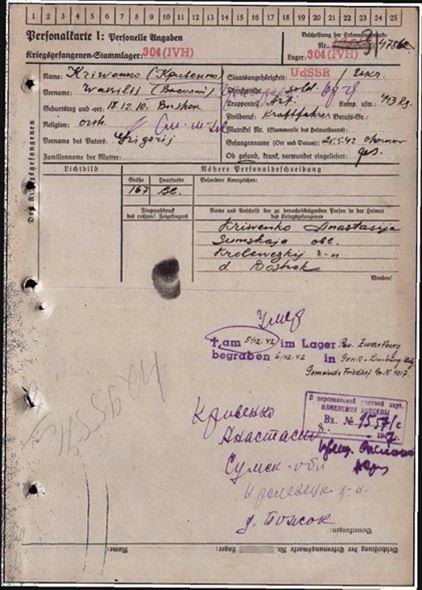 1 2 3 4 5 6 7 8 9 10 11 12 13 14 15 16 17 18 19 20 21 22 23 24 25
Personalkarte I: Personelle Angaben
Kriegsgefangenen-Stammlager: 304 (IVH)
Beschriftung der Erkennungsmarke
Nr.
Lager: 304 (IVH)
Des Kriegsgefangenen
Name: Kriwenko (Кривенко)
Vorname: Wasilij (Василий)
Geburtstag und -ort: 18.12.10.
Religion: orth.
Vorname des Vaters: Grigorij
Familienname der Mutter:
Staatsangehörigkeit: UdSSR / ukr.
Dienstgrad: sold.
Truppenteil: Art. Komp. usw.:
Zivilberuf: Kraftfahrer Berufs-Gr.:
Matrikel Nr. (Stammrolle des Heimatstaates):
Gefangennahme (Ort und Datum): 25.5.42
Ob gesund, krank, verwundet eingeliefert: ges.
Lichtbild
Nähere Personalbeschreibung
Größe
Haarfarbe
Besondere Kennzeichen:
167
bl.
Fingerabdruck
des rechten Zeigefingers
Name und Anschrift der zu benachrichtigenden Person in der Heimat
des Kriegsgefangenen
Kriwenko Anastasija
Sumskaja obl.
Krolewezkij r-n
d.
Wenden!
умер
† am 5/12.42 im Lager Rev. Zwartberg
begraben 6/12.42 in
Gemeinde Friedhof
Кривенко
Анастасия
Сумск. обл
д.
В персональной учетной карт.
ИЗМЕНЕНИЯ ВНЕСЕНЫ
Вх. №
Bemerkungen:
Beschriftung der Erkennungsmarke Nr.
Lager:
Name: